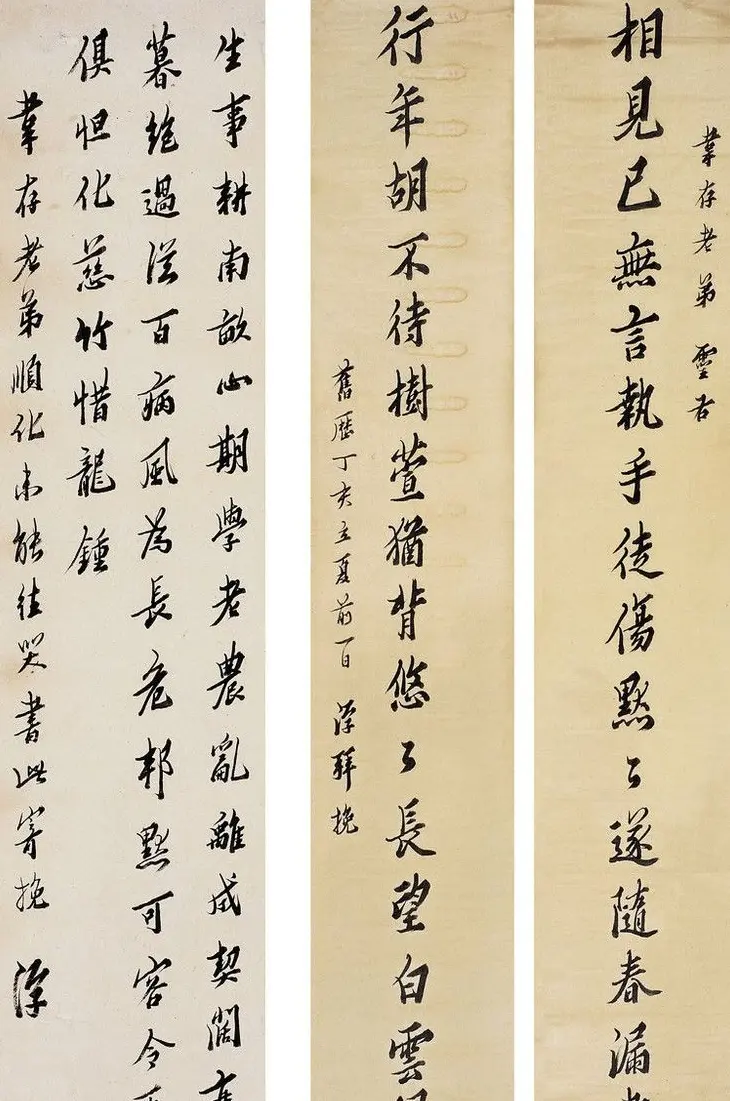 葦存老弟 靈右
相見已無言執手徒傷黙々遂隨春漏
行年胡不待樹萱猶背悠々長望白雲
舊歷丁亥立夏前一日 淳拜挽
生事耕南畝心期學老農亂離成契闊
暮絶過從百病風為長危邦黙可容令
俱怛化慈竹惜龍鍾
葦存老弟順化未能往哭書此寄挽 淳